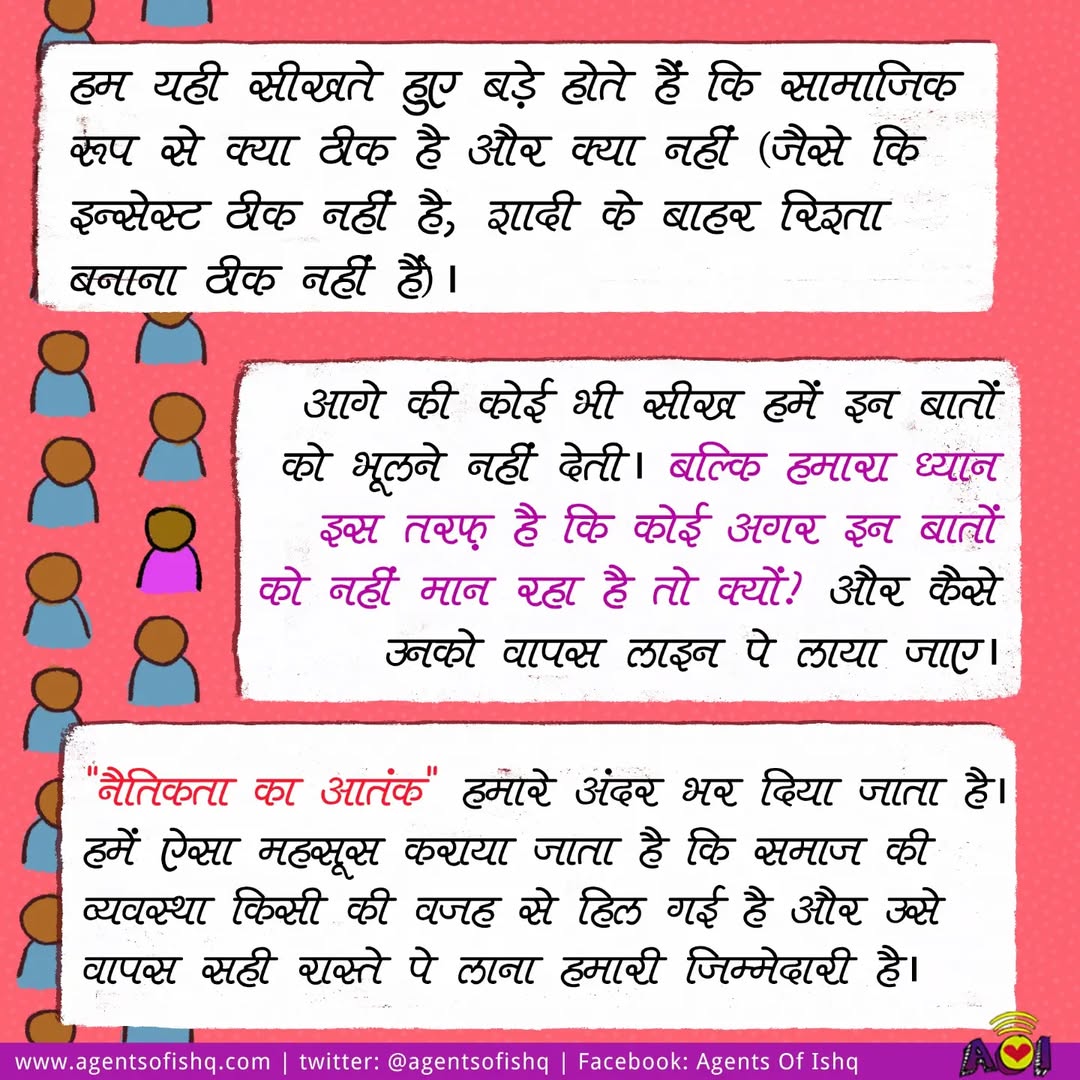 हम यही सीखते हुए बड़े होते हैं कि सामाजिक
रूप से क्या ठीक है और क्या नहीं (जैसे कि
इन्सेस्ट ठीक नहीं है, शादी के बाहर रिश्ता
बनाना ठीक नहीं हैं)।
आगे की कोई भी सीख हमें इन बातों
को भूलने नहीं देती। बल्कि हमारा ध्यान
इस तरफ़ है कि कोई अगर इन बातों
को नहीं मान रहा है तो क्यों? और कैसे
उनको वापस लाइन पे लाया जाए।
"नैतिकता का आतंक" हमारे अंदर भर दिया जाता है।
हमें ऐसा महसूस कराया जाता है कि समाज की
व्यवस्था किसी की वजह से हिल गई है और उसे
वापस सही रास्ते पे लाना हमारी जिम्मेदारी है।
www.agentsofishq.com | twitter: @agentsofishq | Facebook: Agents Of Ishq
AOI